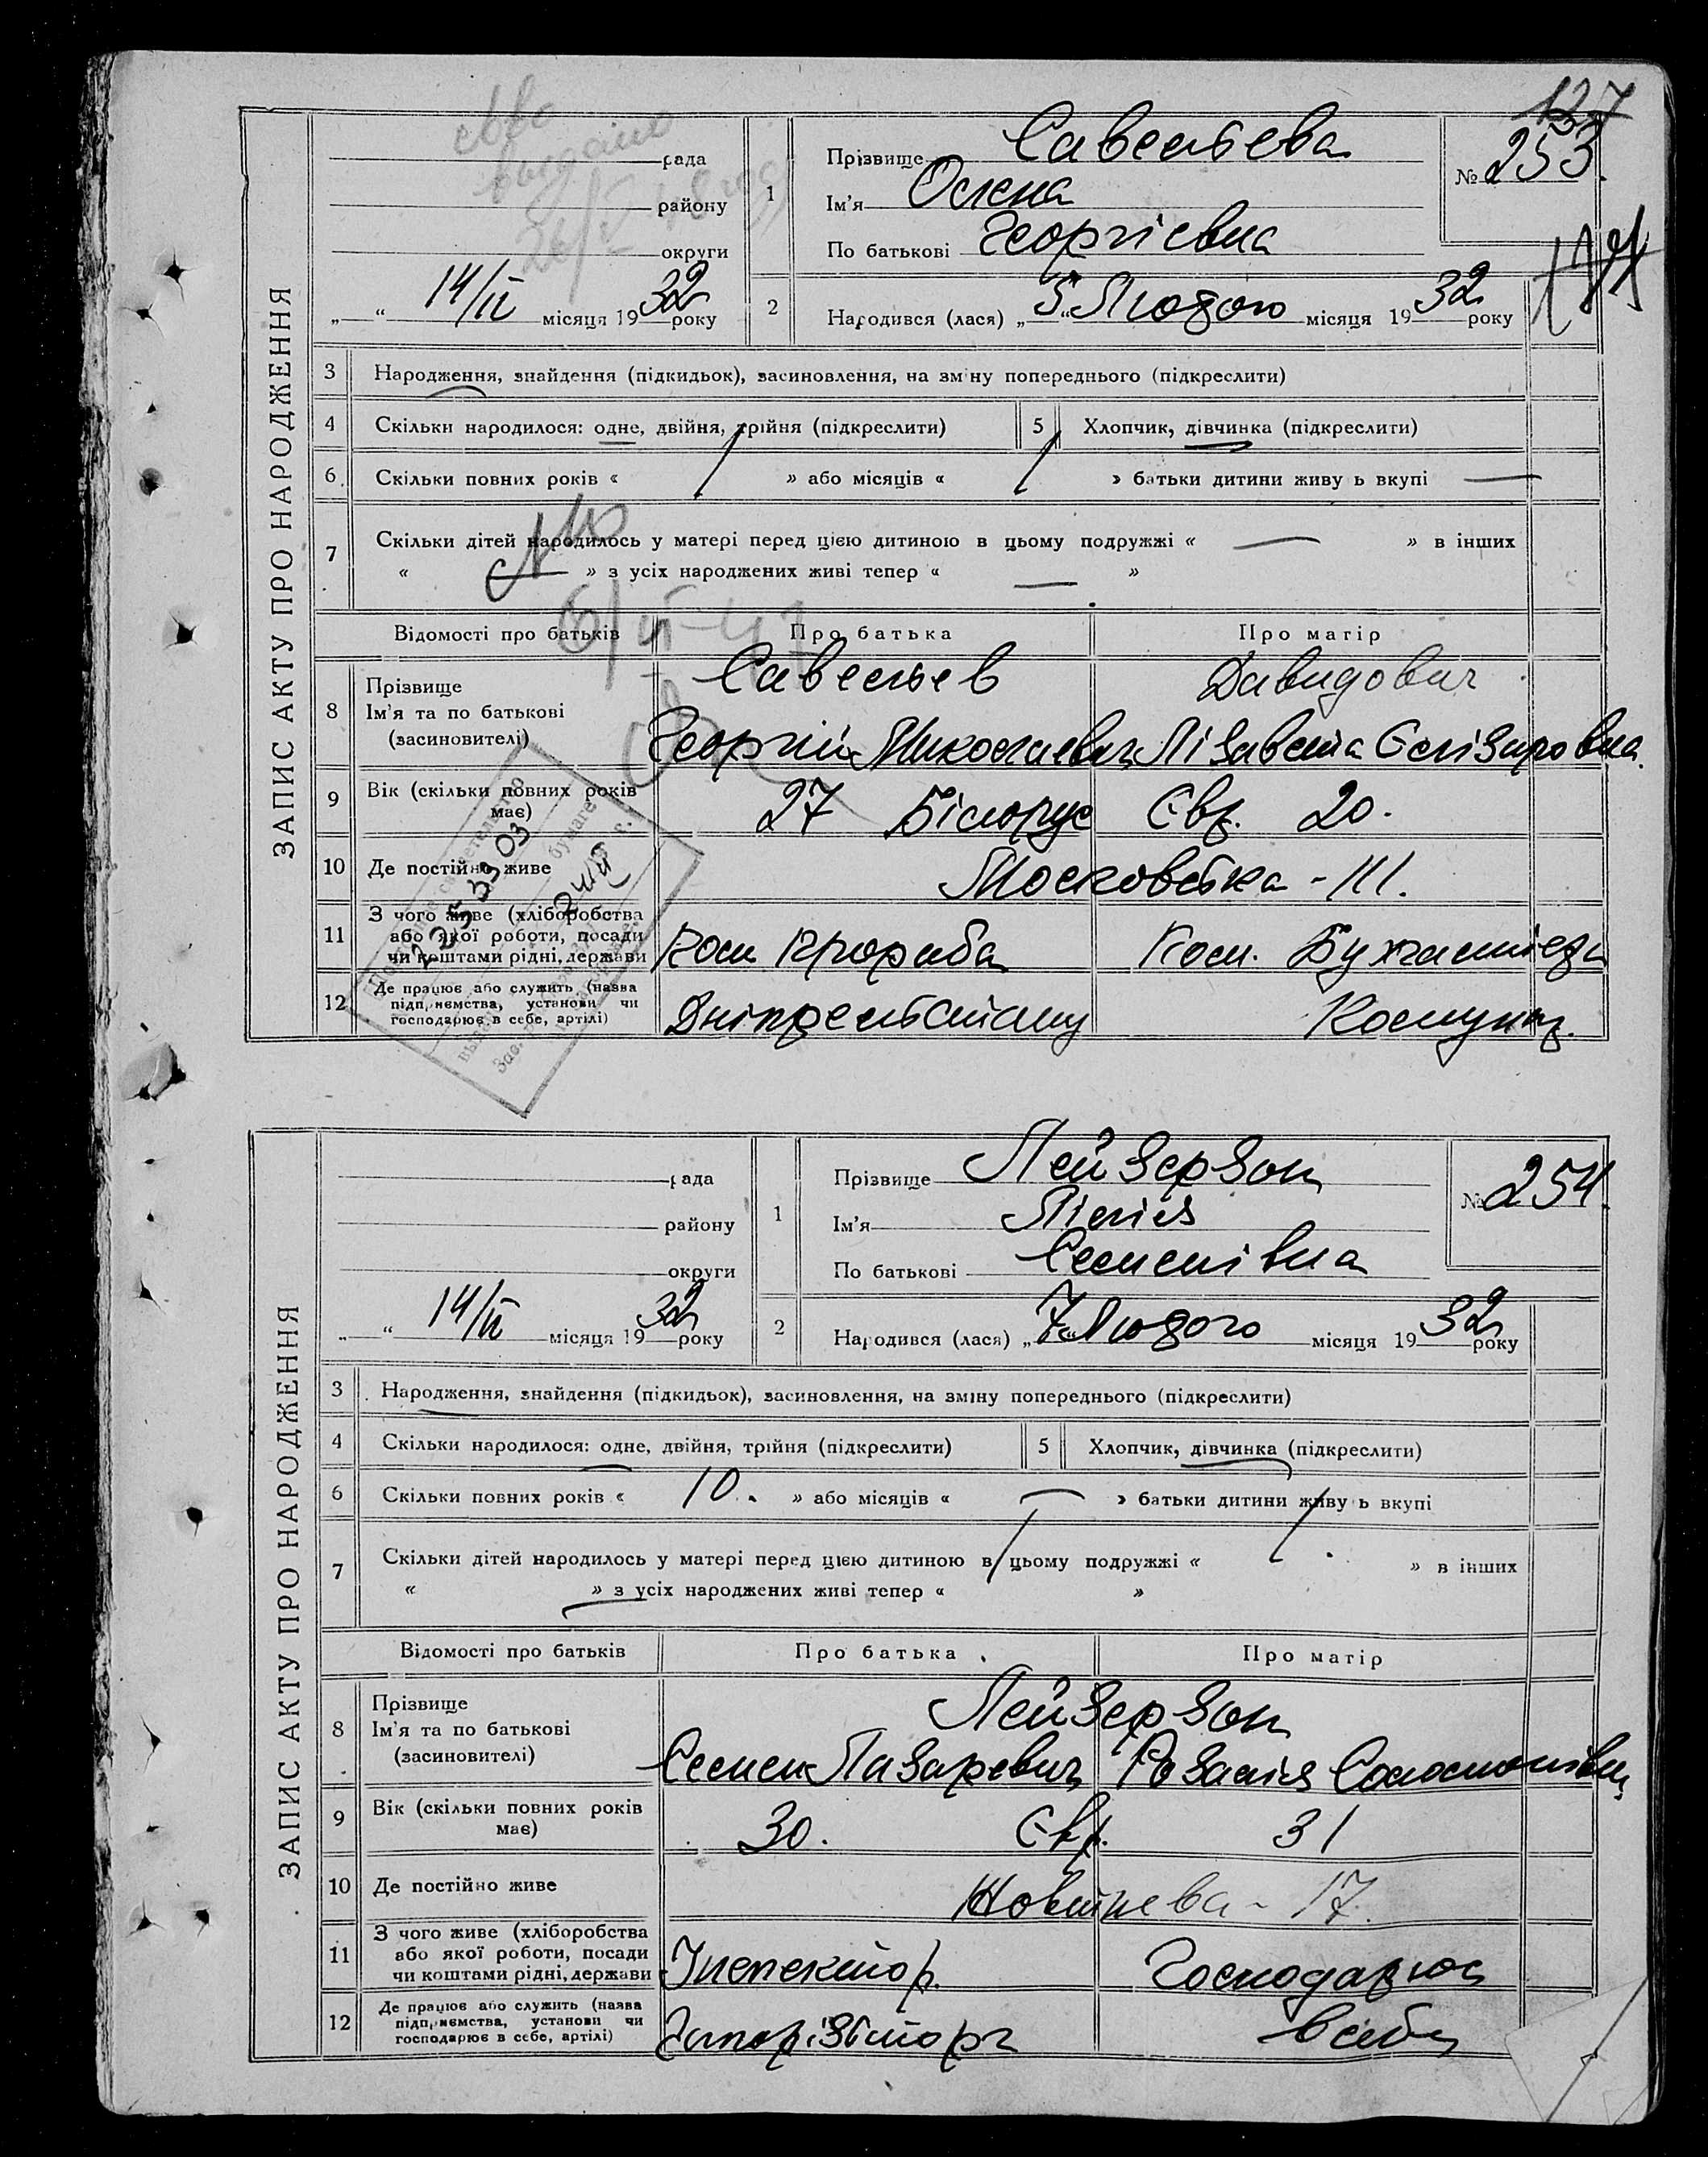 127
ЗАПИС АКТУ ПРО НАРОДЖЕННЯ
рада
району
округи
„ “ 14/II місяця 1932 року
1
Прізвище Савельєва
Ім'я Олена
По батькові Георгієвна
№ 253.
2
Народився (лася) „5“ Лютого місяця 1932 року
3 Народження, знайдення (підкидьок), засиновлення, на зміну попереднього (підкреслити)
4 Скільки народилося: одне, двійня, трійня (підкреслити) 5 Хлопчик, дівчинка (підкреслити)
6 Скільки повних років « / » або місяців « / » батьки дитини живуть вкупі —
7 Скільки дітей народилось у матері перед цією дитиною в цьому подружжі « — » в інших
« — » з усіх народжених живі тепер « — »
Відомості про батьків Про батька Про матір
8 Прізвище Ім'я та по батькові (засновителі)
Савельєв Давидович
Георгій Миколаевич Лізавета Єлізаровна
9 Вік (скільки повних років має) 27 Білорус Євр. 20.
10 Де постійно живе Московська - 111.
11 З чого живе (хліборобства або якої роботи, посади чи коштами рідні, держави
12 Де працює або служить (назва підприємства, установи чи господарює в себе, артілі)
Дніпрельстану Комунар.
223303
24/II
ЗАПИС АКТУ ПРО НАРОДЖЕННЯ
рада
району
округи
„ “ 14/II місяця 1932 року
1
Прізвище Лейзерзон
Ім'я Лілія
По батькові Семенівна
№ 254.
2
Народився (лася) „7“ Лютого місяця 1932 року
3 Народження, знайдення (підкидьок), засиновлення, на зміну попереднього (підкреслити)
4 Скільки народилося: одне, двійня, трійня (підкреслити) 5 Хлопчик, дівчинка (підкреслити)
6 Скільки повних років « 10. » або місяців « — » батьки дитини живуть вкупі
7 Скільки дітей народилось у матері перед цією дитиною в цьому подружжі « » в інших
« » з усіх народжених живі тепер « »
Відомості про батьків Про батька Про матір
8 Прізвище Ім'я та по батькові (засиновителі)
Лейзерзон
Семен Лазаревич Розалія Соломонівна
9 Вік (скільки повних років має) 30. Євр. 31
10 Де постійно живе Жовтнева - 17.
11 З чого живе (хліборобства або якої роботи, посади чи коштами рідні, держави Інспектор. Господарює
12 Де працює або служить (назва підприємства, установи чи господарює в себе, артілі) Запорізторг в себе